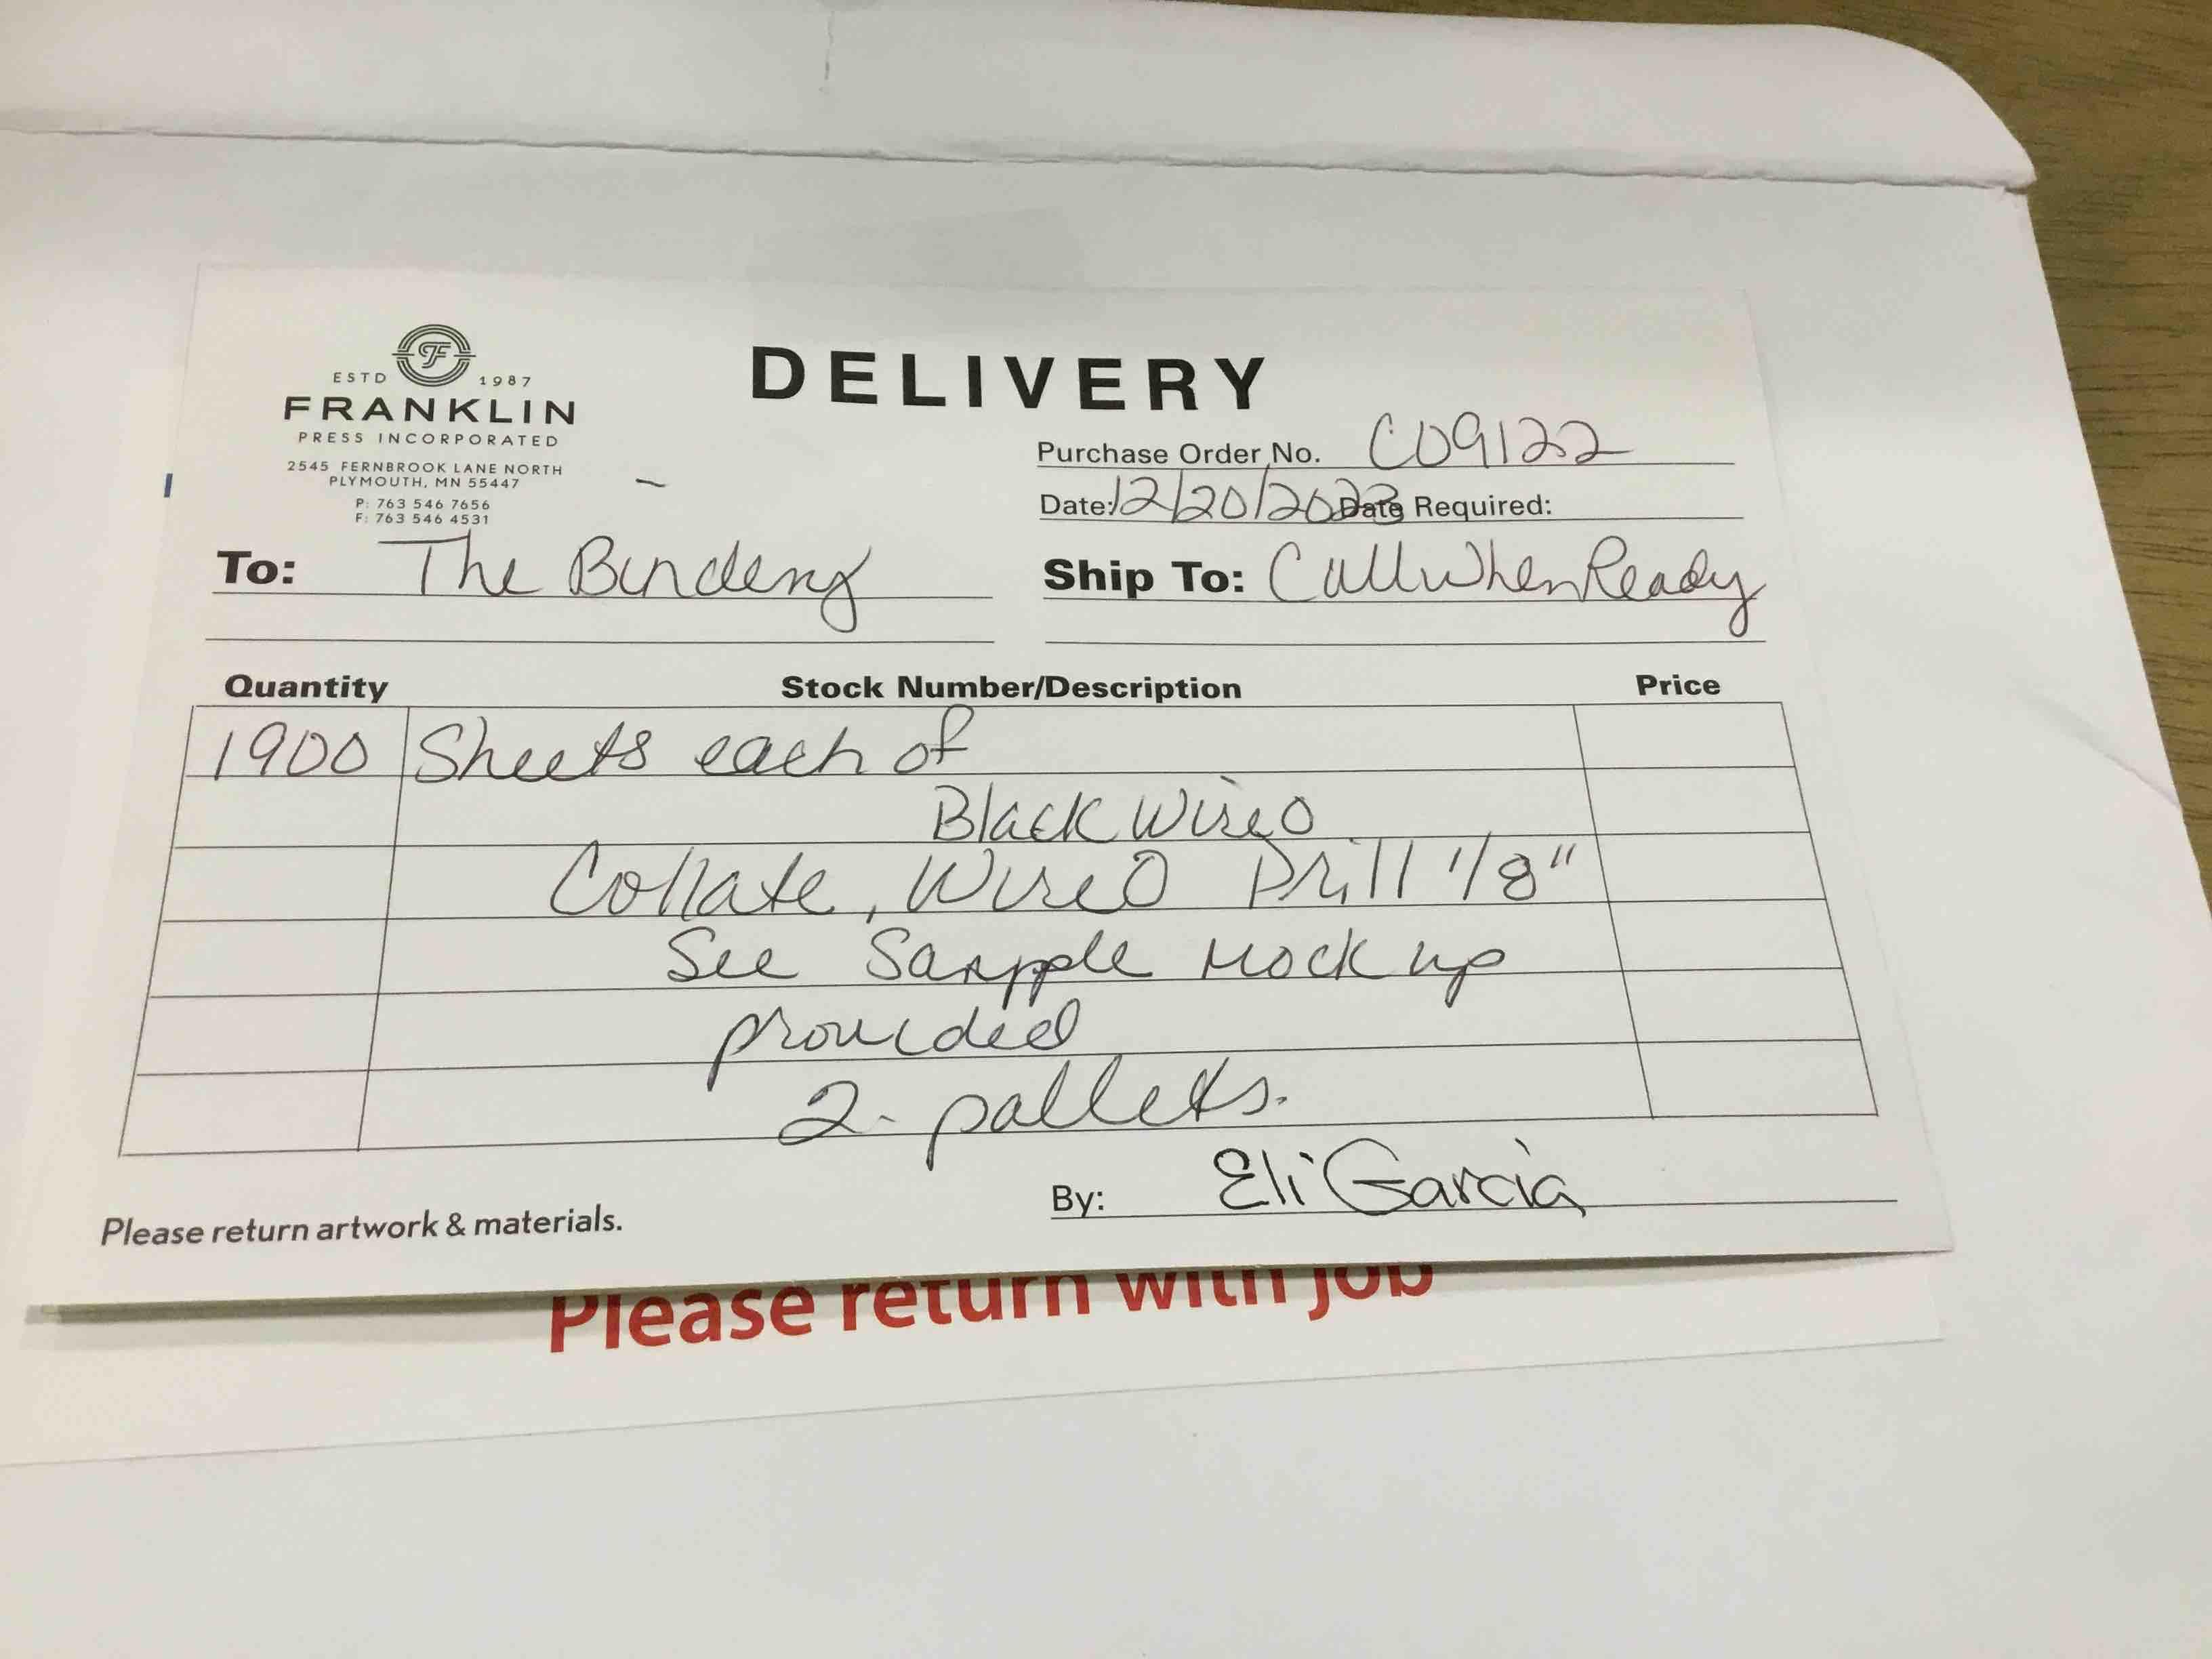 ESTD F 1987
FRANKLIN
PRESS INCORPORATED
2545 FERNBROOK LANE NORTH
PLYMOUTH, MN 55447
P: 763 546 7656
F: 763 546 4531
DELIVERY
Purchase Order No. C09122
Date: 12/20/2023 Date Required:
To: The Bindery
Ship To: Call When Ready
Quantity Stock Number/Description Price
1900 Sheets each of
Black WireO
Collate, WireO Drill 1/8"
See Sample Mock up
provided
2- pallets.
By: Eli Garcia
Please return artwork & materials.
Please return with job